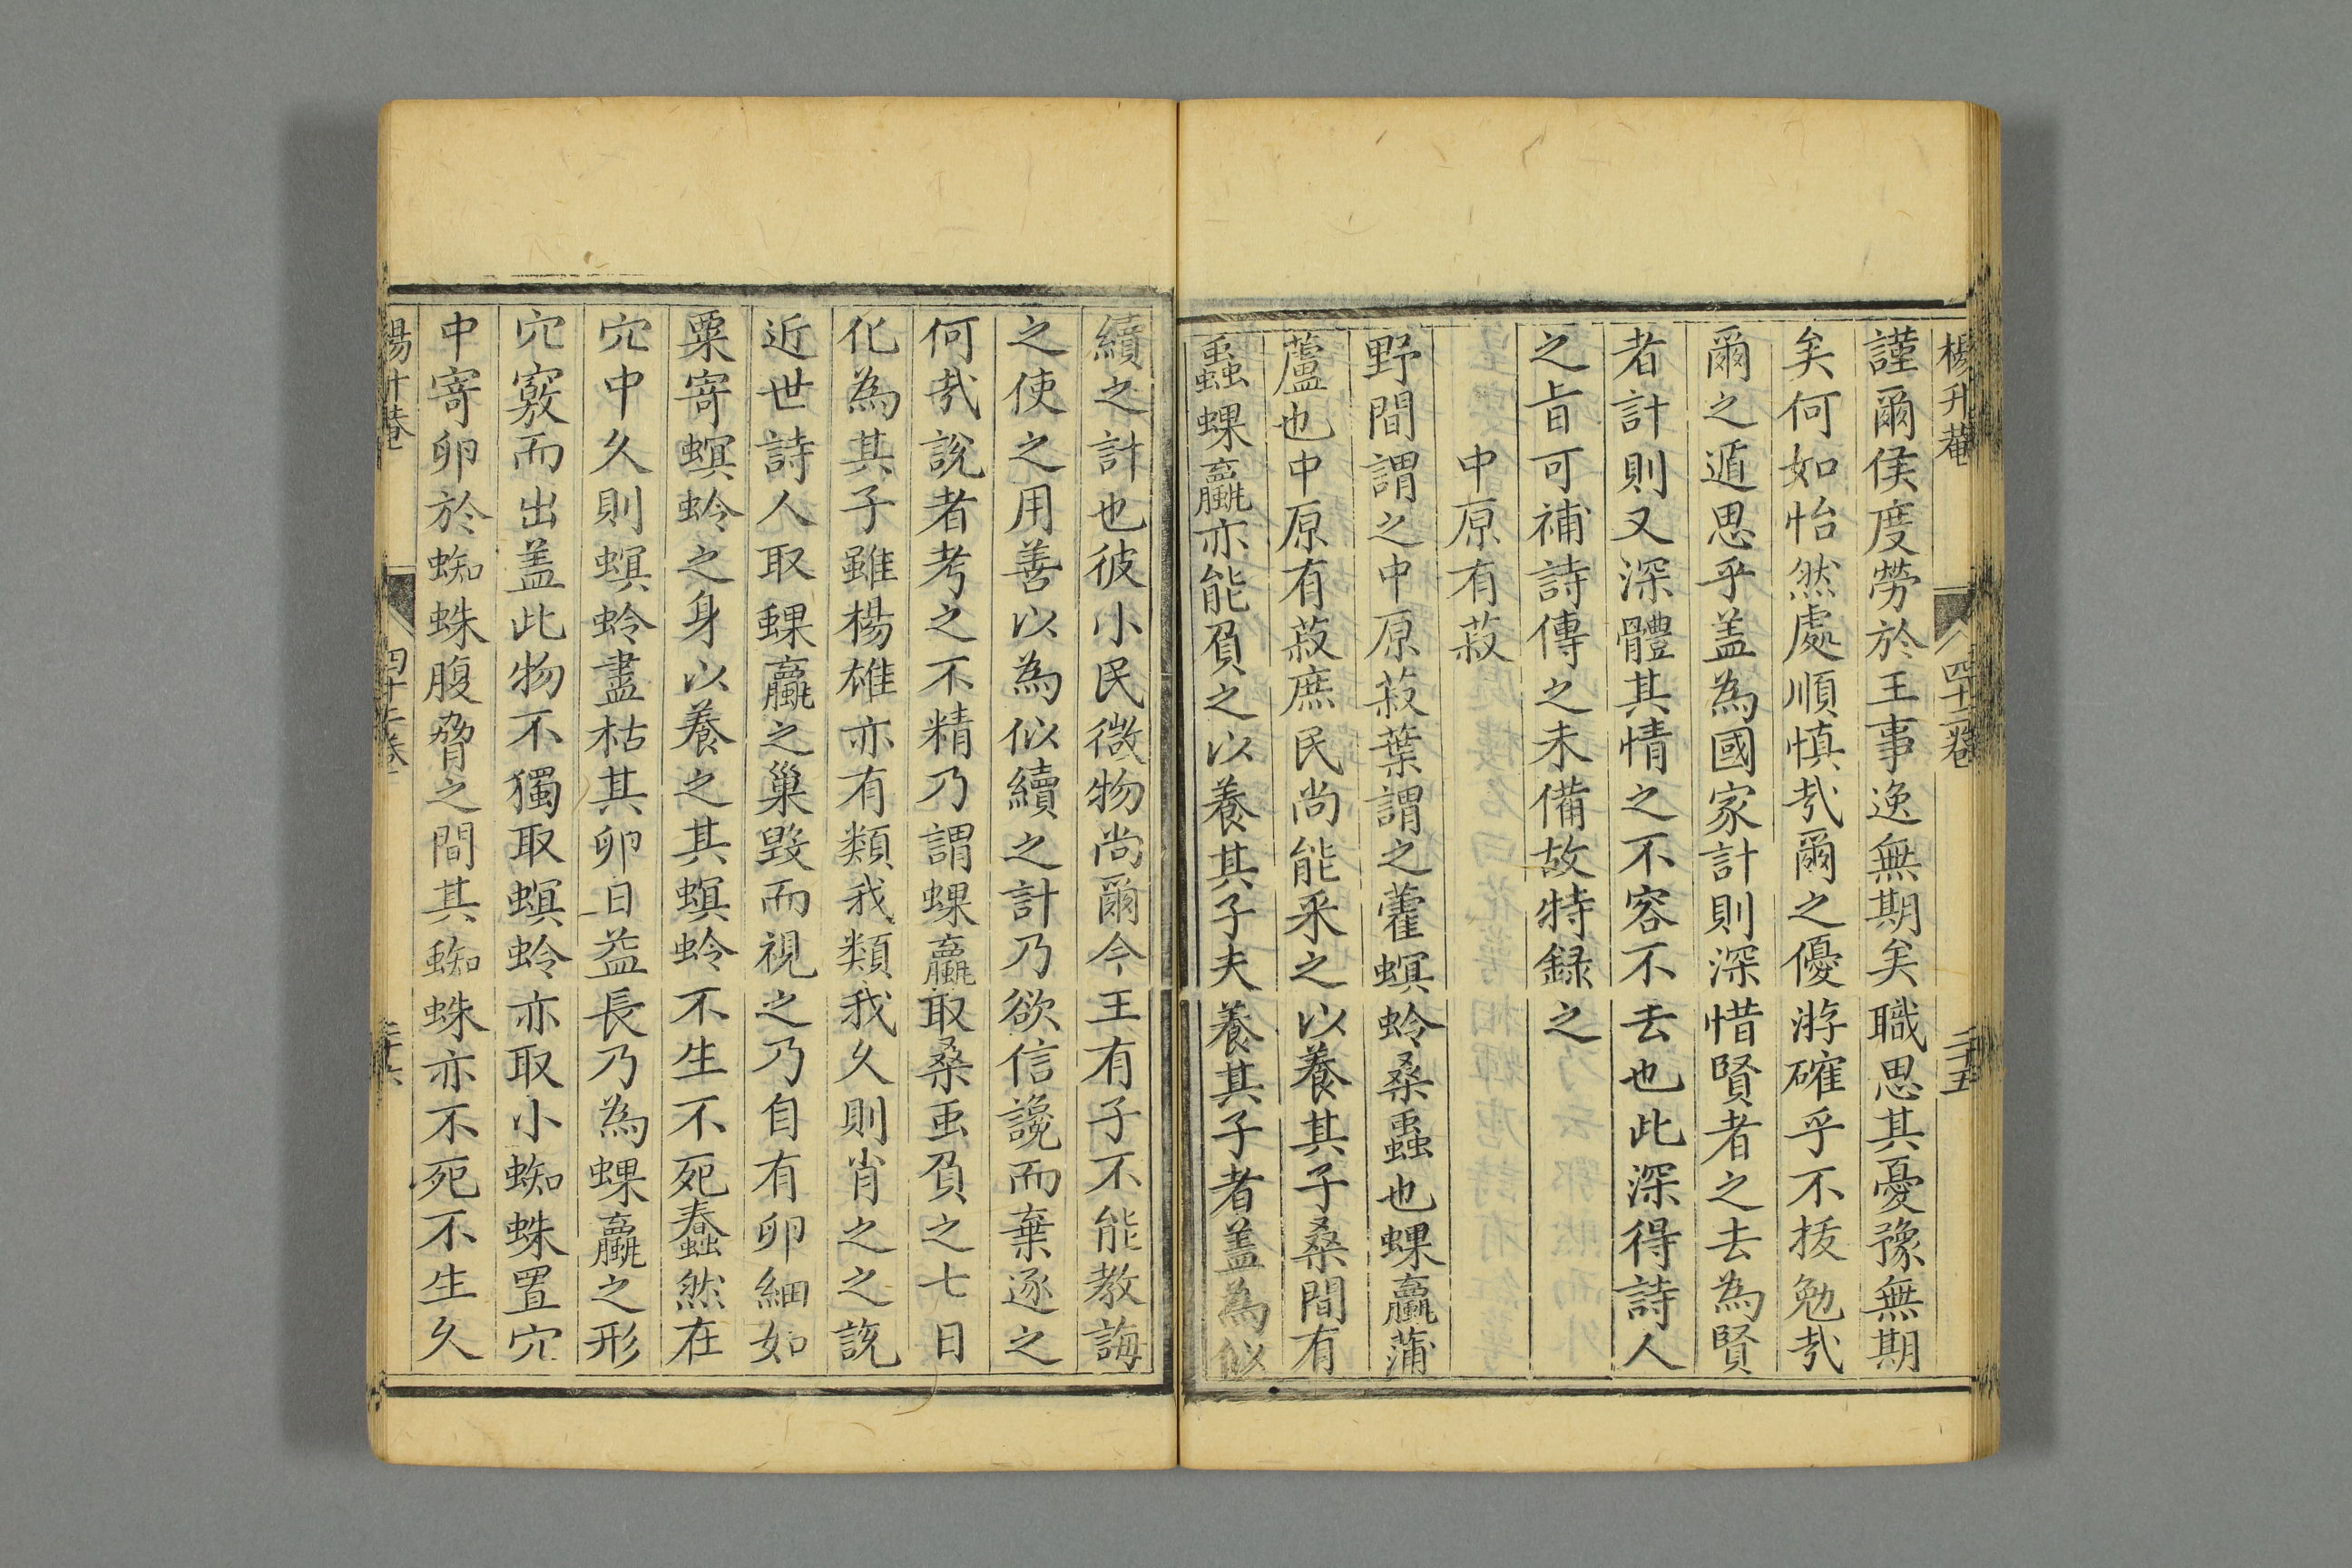 楊升菴 四十二卷 二十五
謹爾侯度勞於王事逸無期矣職思其憂豫無期
矣何如怡然處順慎㢤爾之優游確乎不拔勉㢤
爾之遁思乎盖為國家計則深惜賢者之去為賢
者計則又深體其情之不容不去也此深得詩人
之旨可補詩傳之未備故特録之
中原有菽
野間謂之中原菽葉謂之藿螟蛉桑蟲也蜾蠃蒲
蘆也中原有菽庶民尚能采之以養其子桑間有
蟲蜾蠃亦能負之以養其子夫養其子者盖為似
續之計也彼小民微物尚爾今王有子不能教誨
之使之用善以為似續之計乃欲信讒而棄逐之
何㢤說者考之不精乃謂蜾蠃取桑䖝負之七日
化為其子雖楊雄亦有類我類我久則肖之之説
近世詩人取蜾蠃之巢毀而視之乃自有卵細如
粟寄螟蛉之身以養之其螟蛉不生不死蠢然在
穴中久則螟蛉盡枯其卵日益長乃為蜾蠃之形
穴竅而出盖此物不獨取螟蛉亦取小蜘蛛置穴
中寄卵於蜘蛛腹脅之間其蜘蛛亦不死不生久